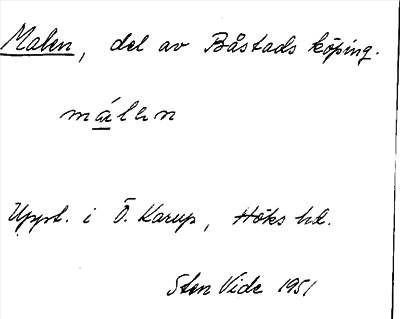 Malen, del av Båstads köping.
målen
Uppt. i Ö. Karup, Höks hd.
Sten Vide 1951